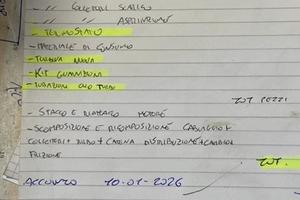 - // // COLLETTORI SCARICO
- // // ASPIRAZIONE
- TERMOSTATO
- MATERIALE DI CONSUMO
- TURBINA NUOVA
- KIT GUARNIZIONI
- TUBAZIONI OLIO TURBO
TOT PEZZI
- STACCO E RIATTACCO MOTORE
- SCOMPOSIZIONE E RICOMPOSIZIONE
COLLETTORI + TURBO + CATENA DISTRIBUZIONE + CAMBIO
FRIZIONE
TOT.
ACCONTO 10-01-2026